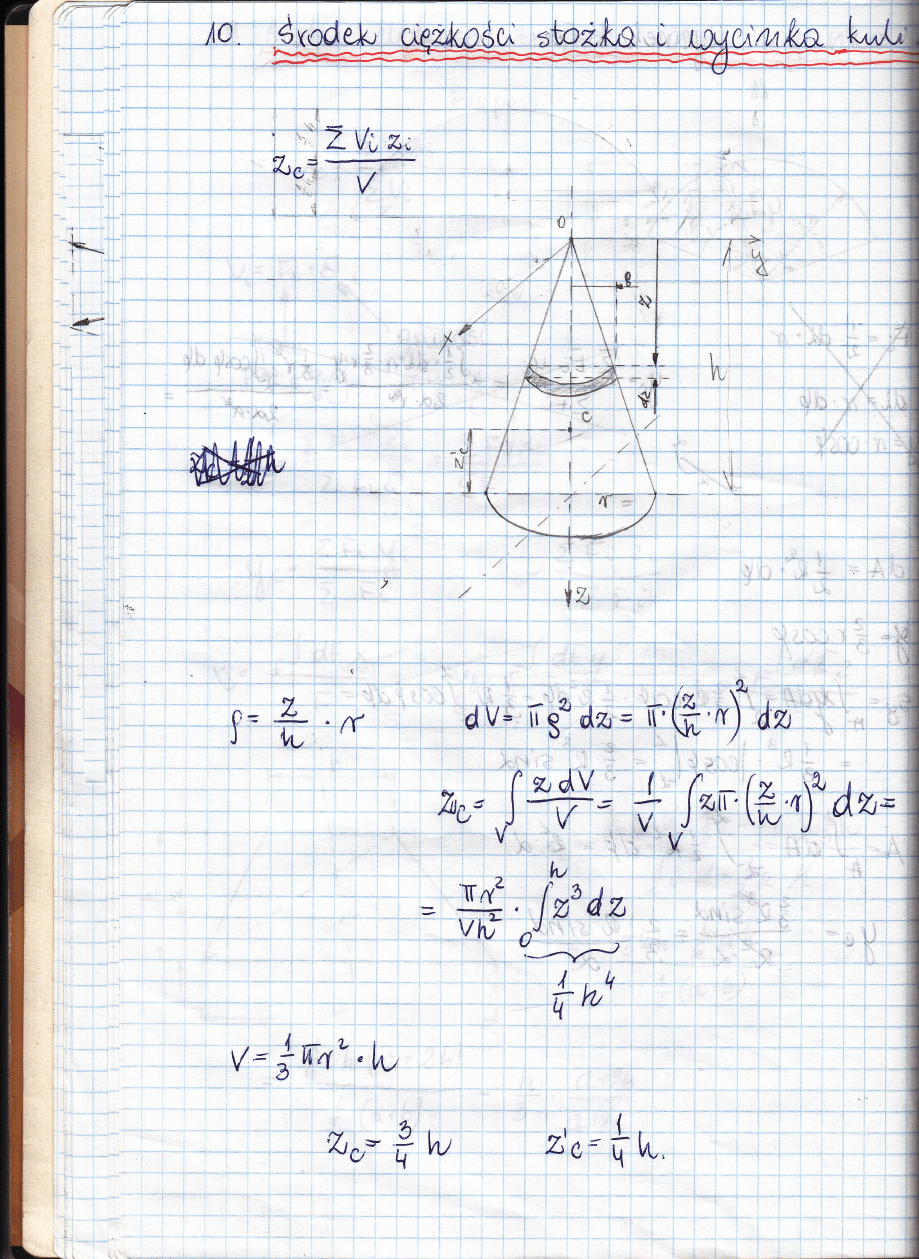 10. Środek ciężkości stożka i wycinka kuli
z_c = Σ V_i z_i / V
0
y
x
ρ
z
h
dz
c
z'_c
r =
z
ρ = z/h · r    dV = πρ² dz = π·(z/h · r)² dz
z_c = ∫_V z dV / V = 1/V ∫_V zπ·(z/h · r)² dz =
= πr²/Vh² · ∫_0^h z³ dz
1/4 h⁴
V = 1/3 πr² · h
z_c = 3/4 h    z'_c = 1/4 h.